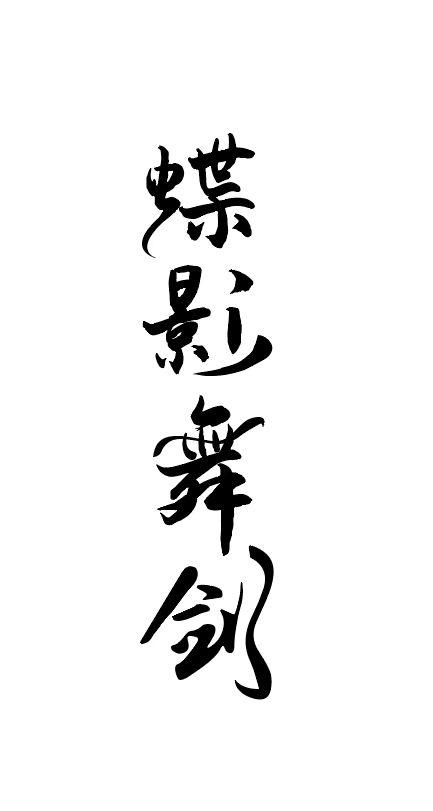 蝶影舞剑